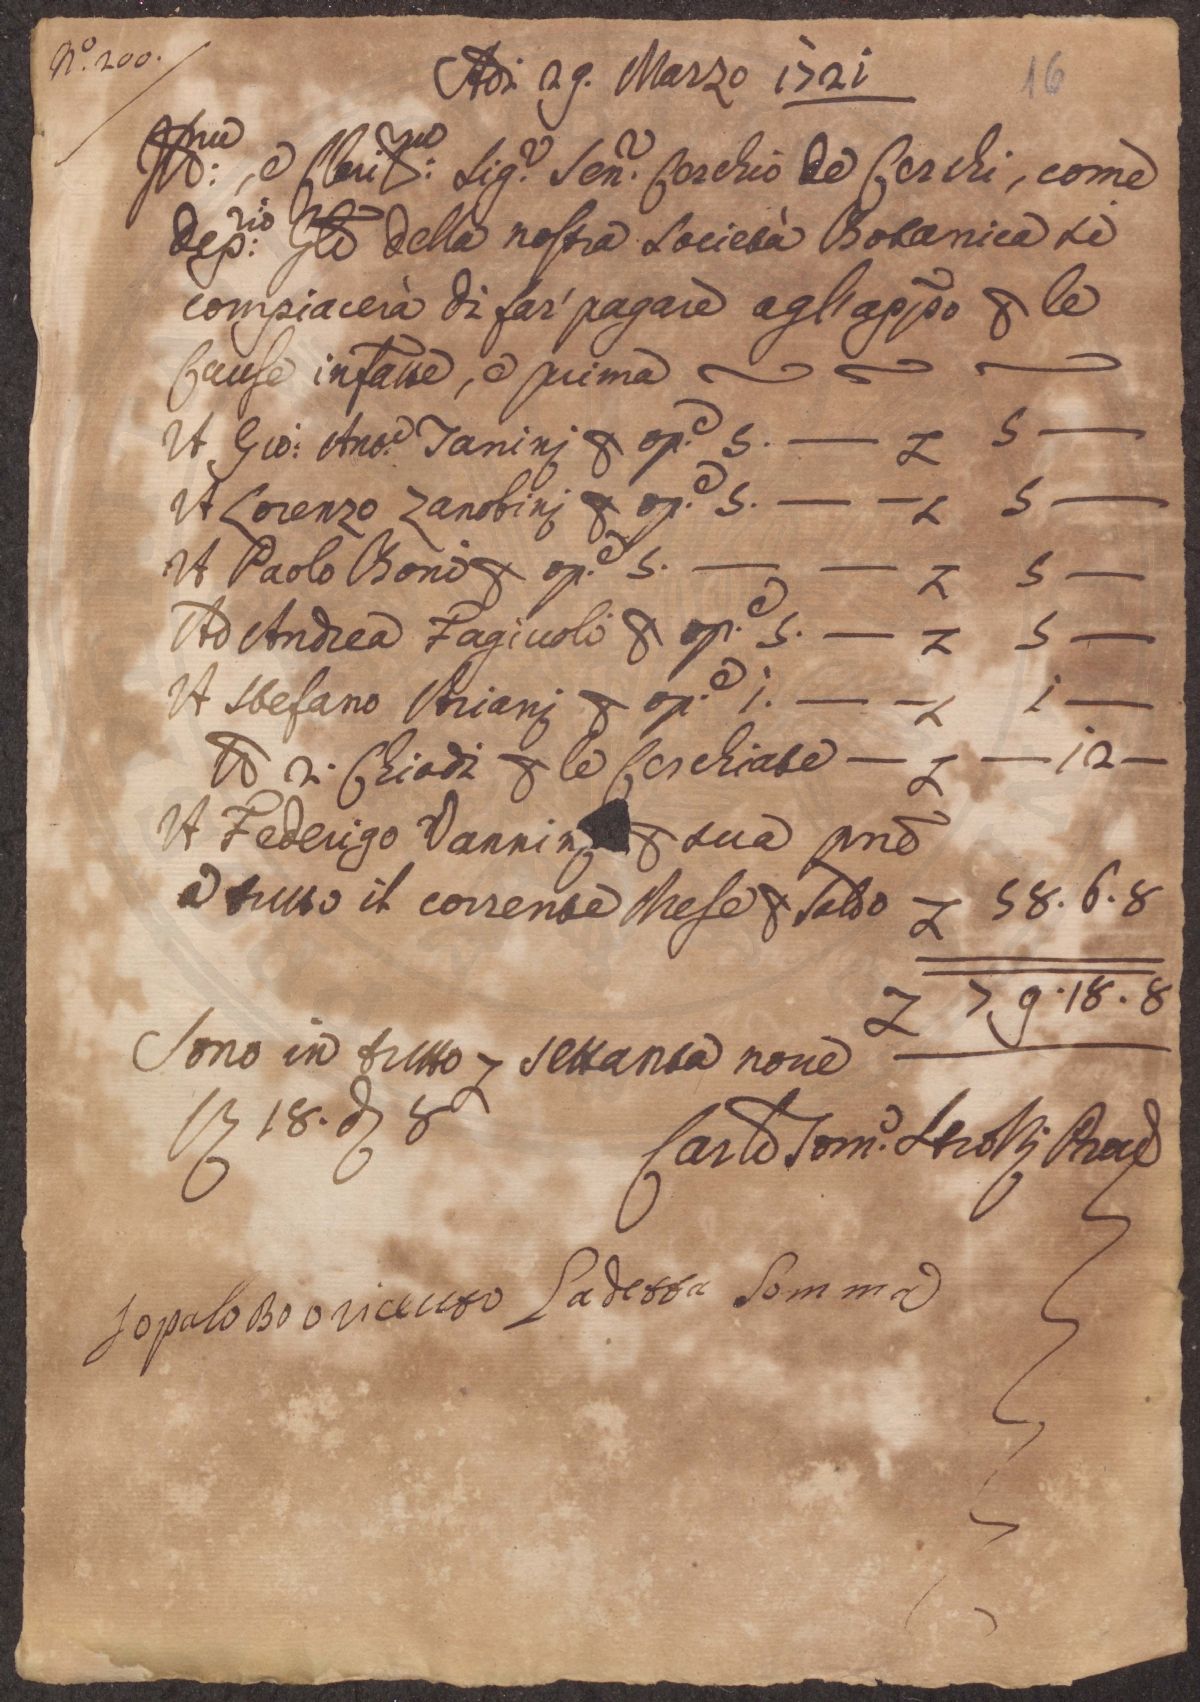 N.o 200.
Adi 29. Marzo 1721
16
Ill:mo, e Cleri:mo Sig.r Sen.r Cerchio de Cerchi, come
dep:rio Gle della nostra Società Botanica si
compiacerà di far' pagare agl'app.o p le
Cause infratte, e prima
A Gio: Ant.o Taninj p op.e 5. — L 5 —
A Lorenzo Zanobinj p op.e 5. — — L 5 —
A Paolo Boni p op.e 5. — — L 5 —
Ad Andrea Fagiuoli p op.e 5. — L 5 —
A Stefano Arianj p op.e 1. — — L 1 —
E 2. Chiodi p le Cerchiate — L — 12 —
A Federigo Vanninj p sua pne
a tutto il corrente Mese p saldo L 58. 6. 8
L 79. 18. 8
Sono in tutto L settanta noue
s 18. d 8
Carlo Tom.o Strozzj Proue
Jo palo Bo o riceuto La detta Somma